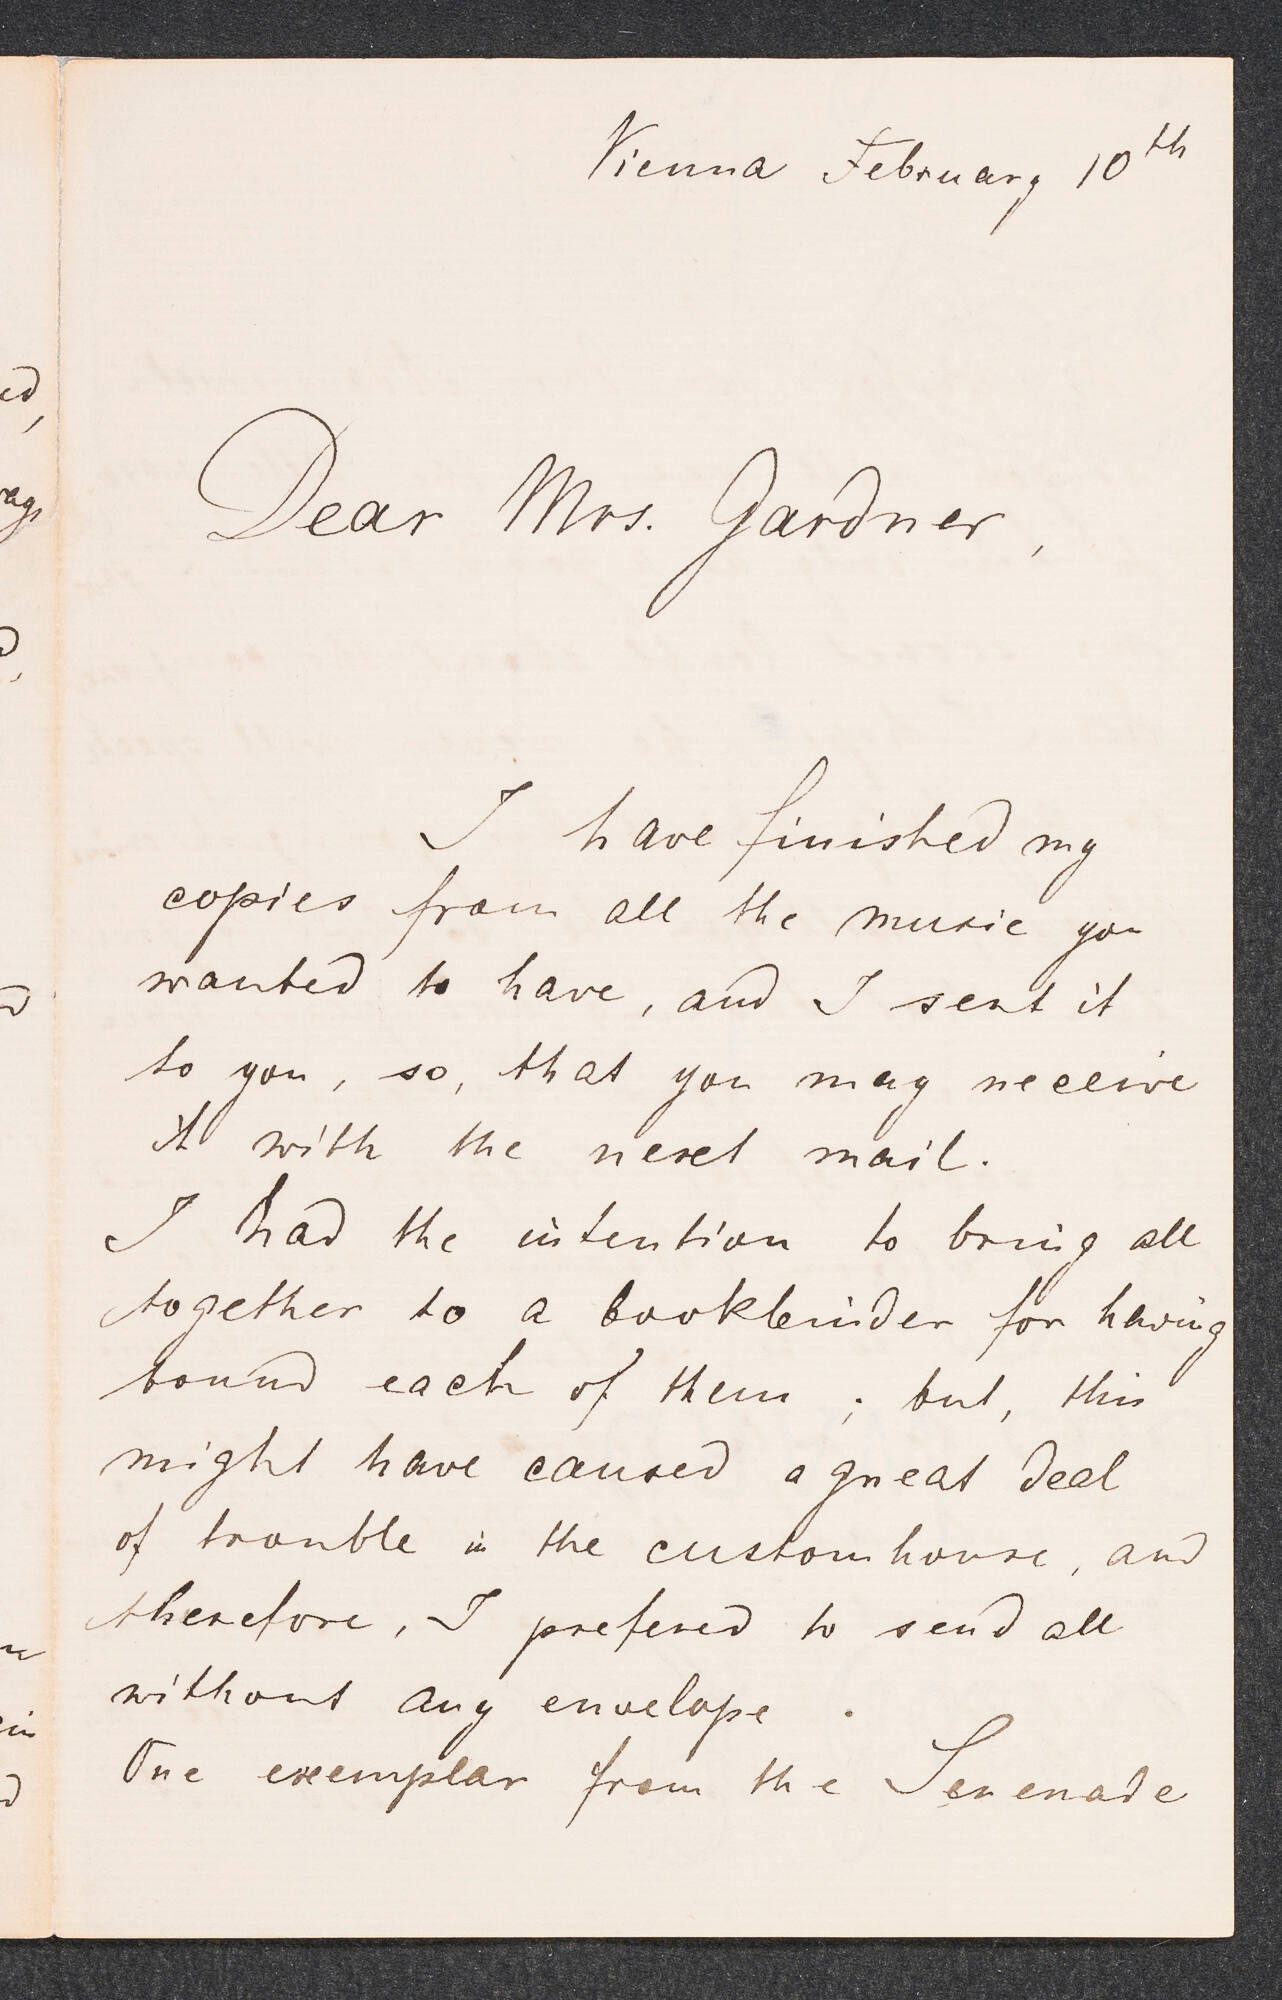 Vienna February 10th
Dear Mrs. Gardner,
I have finished my
copies from all the music you
wanted to have, and I sent it
to you, so, that you may receive
it with the next mail.
I had the intention to bring all
together to a bookbinder for having
bound each of them ; but, this
might have caused a great deal
of trouble in the customhouse, and
therefore, I prefered to send all
without any envelope .
One exemplar from the Serenade